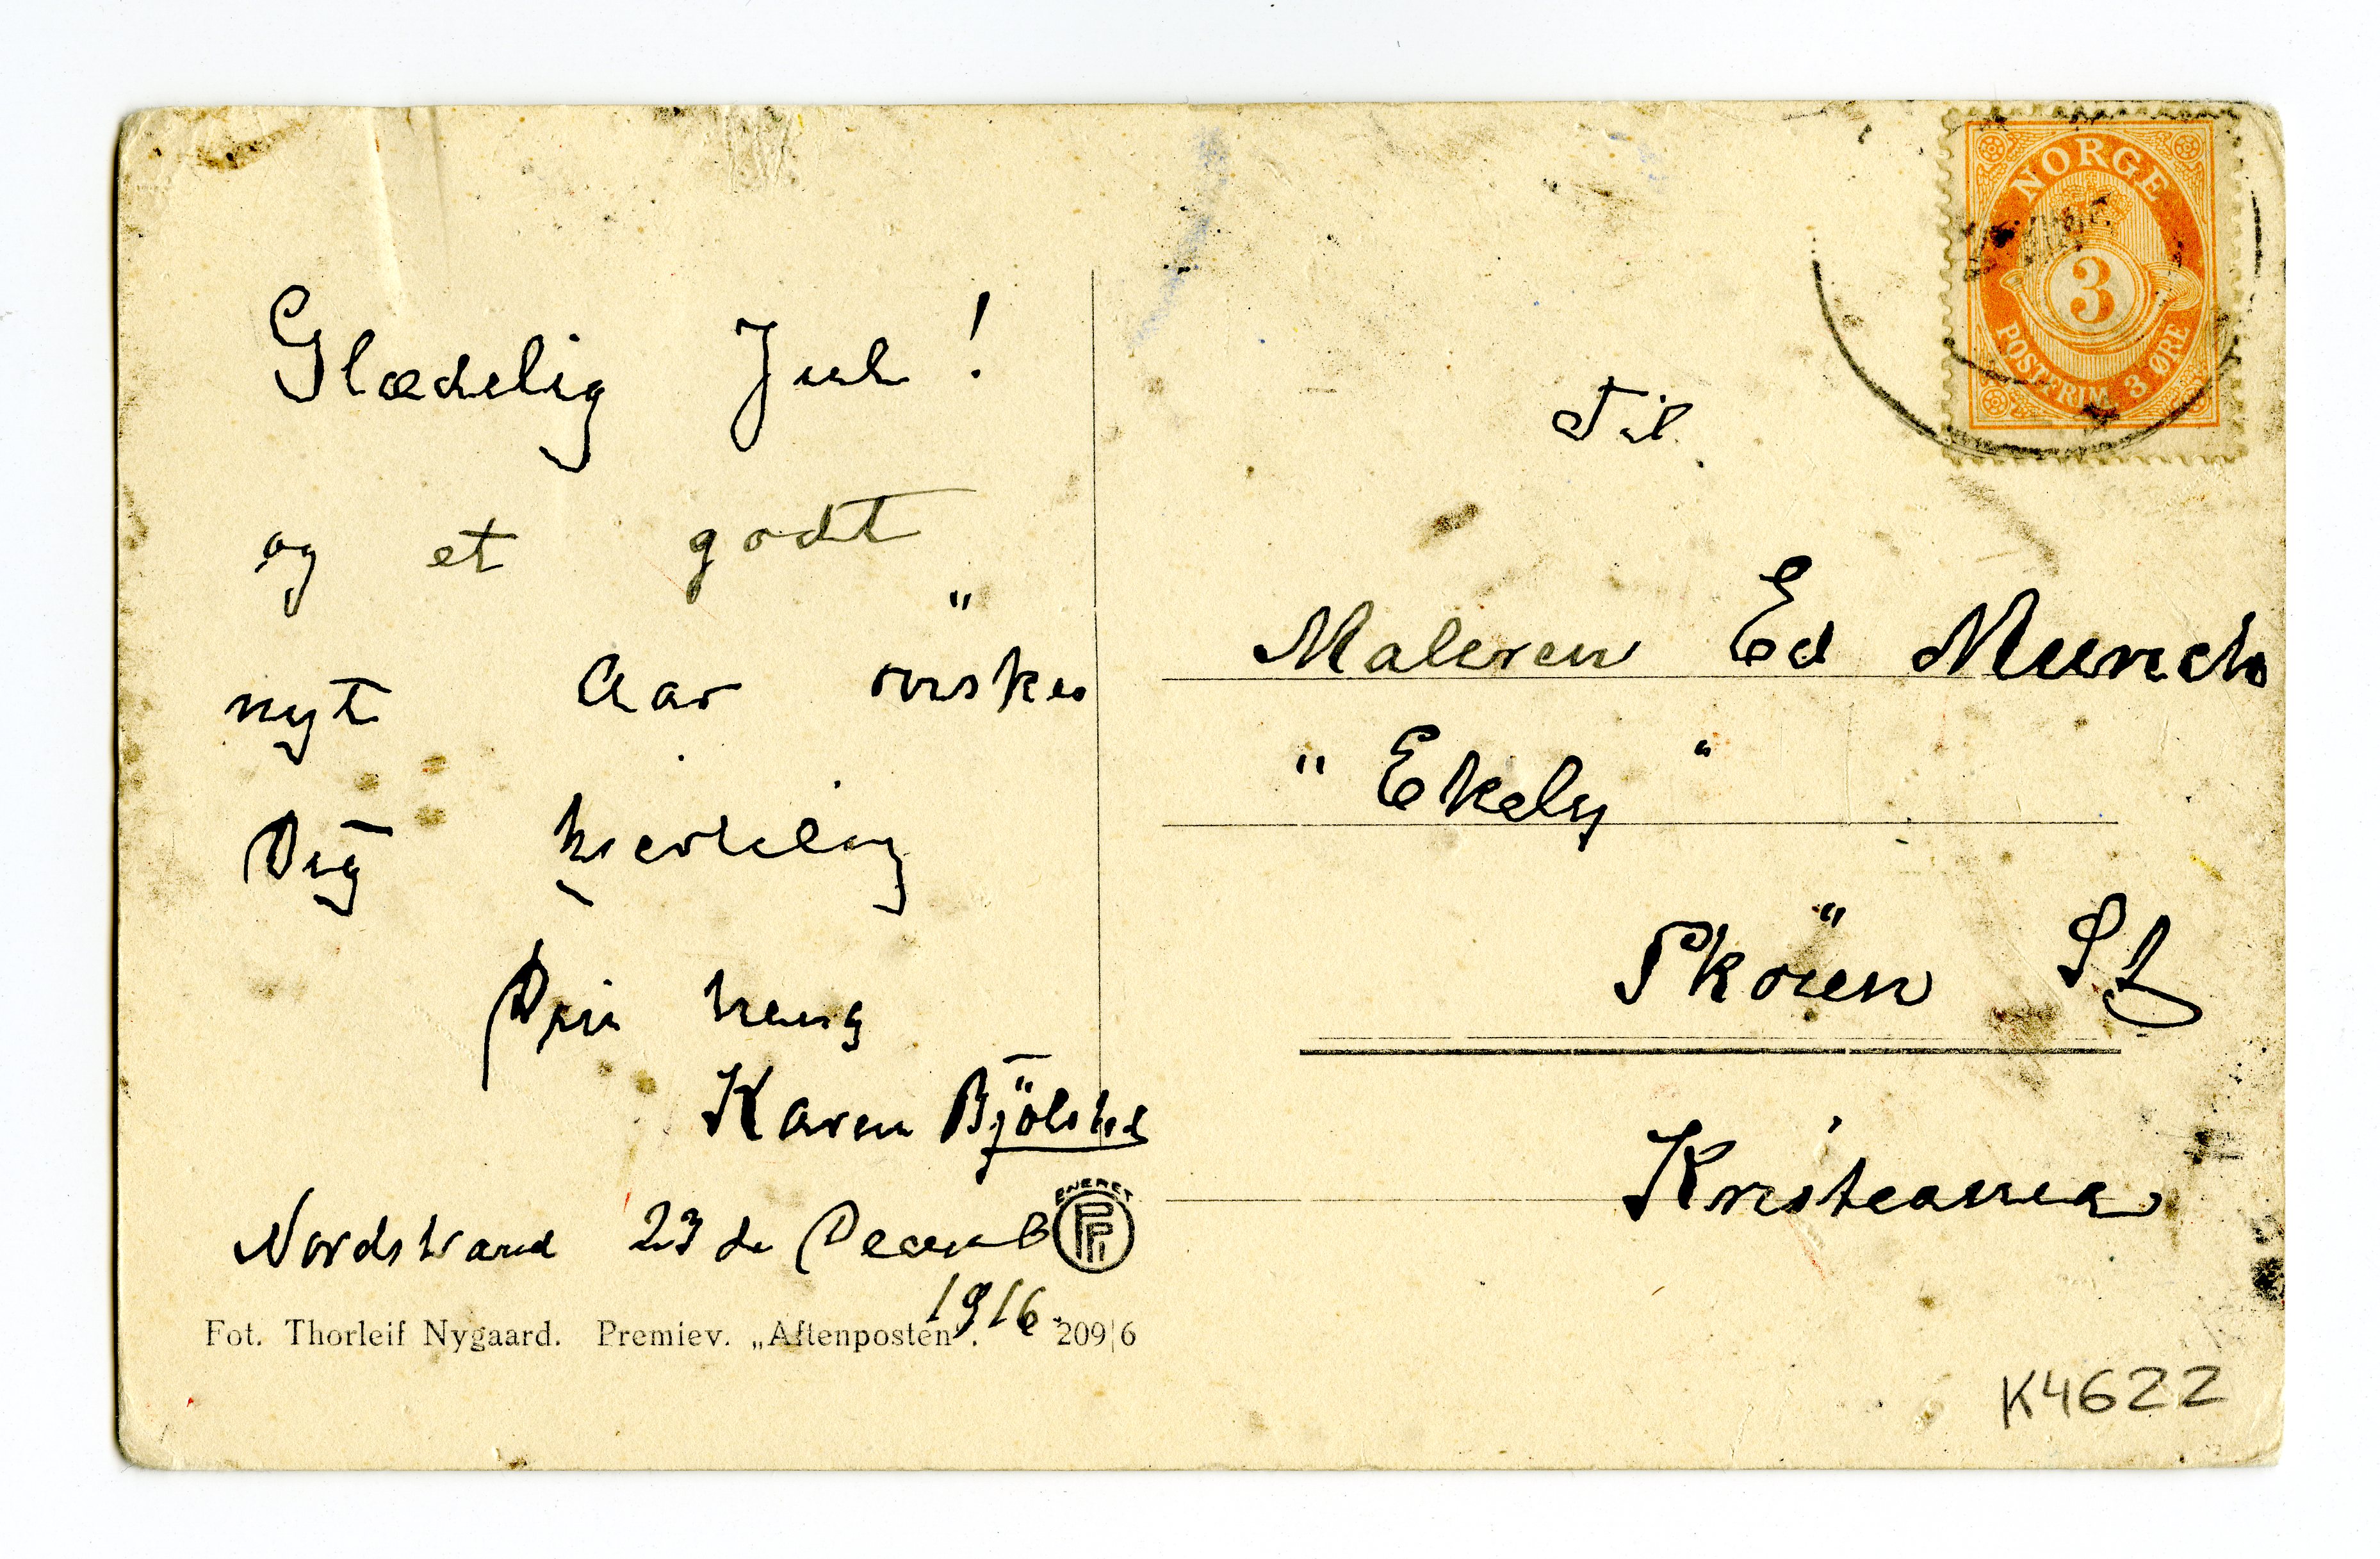 Glædelig Jul!
og et godt
nyt Aar önsker
Dig hjertelig
Din heng
Karen Bjölstad
Nordstrand 23 de Decemb
1916.
ENERET
Fot. Thorleif Nygaard. Premiev. „Aftenposten“. 209|6
NORGE
3
POSTFRIM. 3 ØRE
Til
Maleren Ed Munch
"Ekely"
Sköien St
Kristiania
K4622